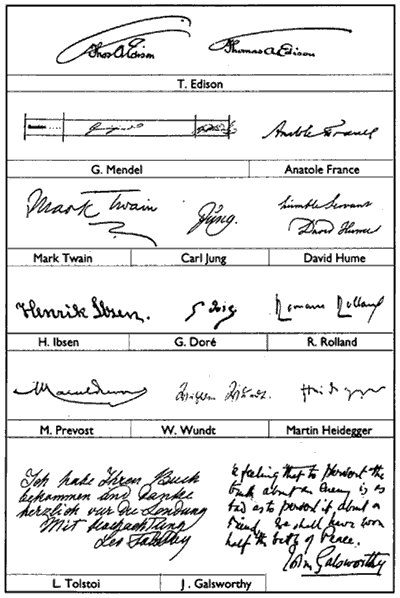 Thos A Edison Thomas A Edison
T. Edison
Anatole France
G. Mendel Anatole France
Mark Twain Jung. humble Servant
David Hume
Mark Twain Carl Jung David Hume
Henrik Ibsen. G Doré Romain Rolland
H. Ibsen G. Doré R. Rolland
Heidegger
M. Prevost W. Wundt Martin Heidegger
Ich habe Ihren Buch
bekommen und danke
herzlich vür die Sendung
Mit Hochachtung
Leo Tolstoy
feeling that to pervert the
truth about an Enemy is as
bad as to pervert it about a
Friend, we shall have won
half the battle of Peace.
John Galsworthy
L. Tolstoi J. Galsworthy